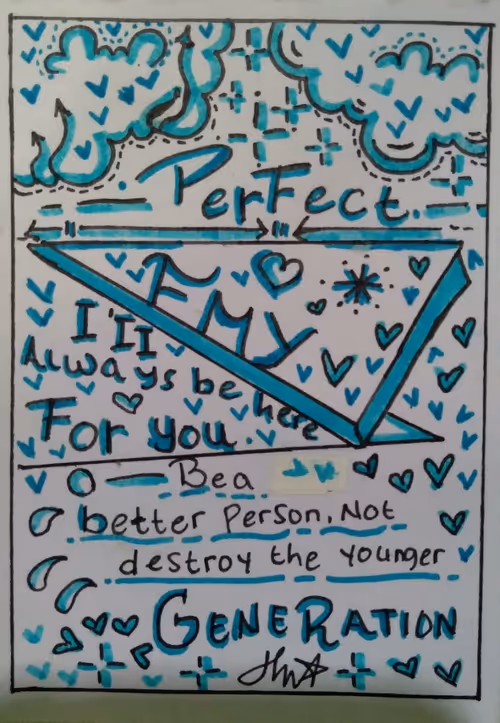 Perfect.
FMY
I'll
Always be here
For you.
Be a
better Person. Not
destroy the younger
GENERATION